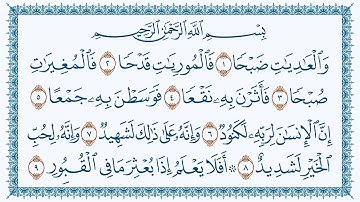 بِسْمِ اللَّهِ الرَّحْمَٰنِ الرَّحِيمِ
وَالْعَادِيَاتِ ضَبْحًا ١ فَالْمُورِيَاتِ قَدْحًا ٢ فَالْمُغِيرَاتِ
صُبْحًا ٣ فَأَثَرْنَ بِهِ نَقْعًا ٤ فَوَسَطْنَ بِهِ جَمْعًا ٥
إِنَّ الْإِنسَانَ لِرَبِّهِ لَكَنُودٌ ٦ وَإِنَّهُ عَلَىٰ ذَٰلِكَ لَشَهِيدٌ ٧ وَإِنَّهُ لِحُبِّ
الْخَيْرِ لَشَدِيدٌ ٨ ۞ أَفَلَا يَعْلَمُ إِذَا بُعْثِرَ مَا فِي الْقُبُورِ ٩